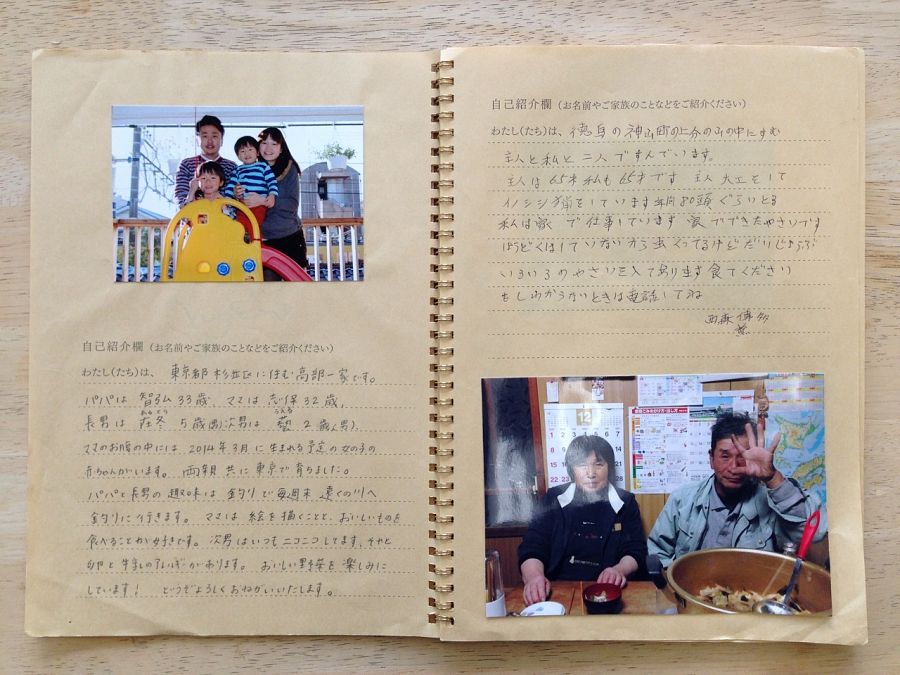 自己紹介欄 (お名前やご家族のことなどをご紹介ください)
わたし(たち)は、東京都杉並区に住む高部一家です。
パパは 智弘 33歳、ママは 志保 32歳、
長男は 荘冬 5歳 次男は 藝 2歳(男)、
ママのお腹の中には 2014年3月に生まれる予定の女の子の
赤ちゃんがいます。 両親共に東京で育ちました。
パパと長男の趣味は 釣りで毎週末 遠くの川へ
釣りに行きます。 ママは 絵を描くことと、おいしいものを
食べることが好きです。次男はいつもニコニコしてます、
卵と牛乳のアレルギーがあります。 おいしい野菜を楽しみに
しています! どうぞよろしくおねがいいたします。
自己紹介欄 (お名前やご家族のことなどをご紹介ください)
わたし(たち)は、徳島の神山町の上分の山の中にすむ
主人と私と二人ですんでいます。
主人は65才私も65才です 主人 大工をして
イノシシ猟をしています 年間80頭ぐらいとる
私は家で仕事しています 家でできたやさいです
しょうどくはしていないから虫くってるけどだいじょうぶ
いろいろのやさい入てあります食てください
もしわからないときは電話してね
西森
12